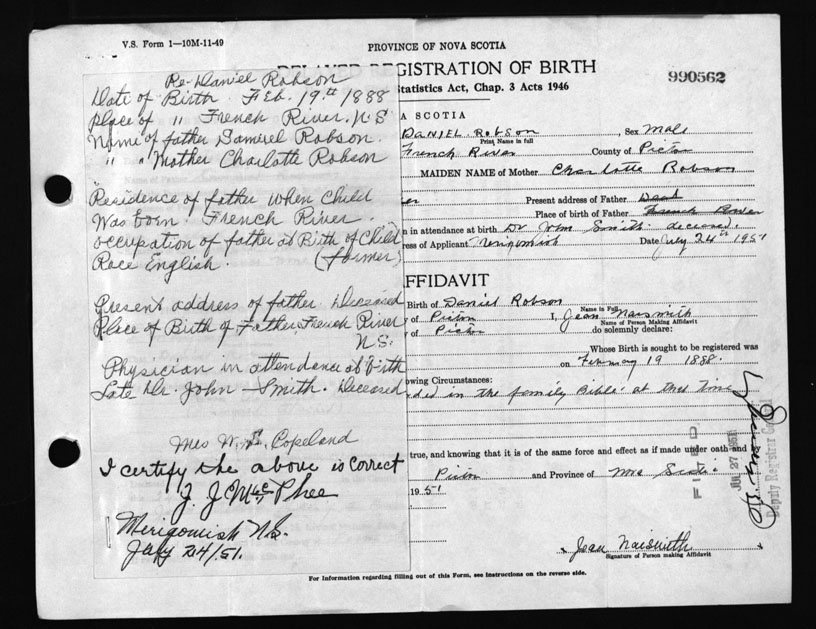 V.S. Form 1—10M-11-49
PROVINCE OF NOVA SCOTIA
DELAYED REGISTRATION OF BIRTH
990562
Statistics Act, Chap. 3 Acts 1946
Re- Daniel Robson
Date of Birth. Feb. 19th 1888
place of " French River. N.S
Name of father Samuel Robson.
" " Mother Charlotte Robson
Residence of father when Child
Was born. French River.
occupation of father at Birth of Child
Race English. (farmer)
Present address of father. Deceased
Place of Birth of Father, French River
N.S.
Physician in attendance at birth
Late Dr. John Smith. Deceased
Mrs W. Copeland
I certify the above is correct
J. J McPhee
Merigomish N.S.
July 24/51.
A SCOTIA
DANIEL ROBSON Sex Male
Print Name in full
French River County of Pictou
MAIDEN NAME of Mother Charlotte Robson
er Present address of Father Dead
Place of birth of Father French River
n in attendance at birth Dr John Smith deceased.
ress of Applicant Merigomish Date July 24th 1951
FFIDAVIT
Birth of Daniel Robson
Name in Full
y of Pictou I, Jean Naismith
Name of Person Making Affidavit
y of Pictou do solemnly declare:
Whose Birth is sought to be registered was
on February 19 1888.
owing Circumstances:
ded in the family Bible at that time
true, and knowing that it is of the same force and effect as if made under oath and
Pictou and Province of Nova Scotia
1951
FILED
JUL 27 1951
Deputy Registrar General
x Jean Naismith x
Signature of Person making Affidavit
For Information regarding filling out of this Form, see Instructions on the reverse side.